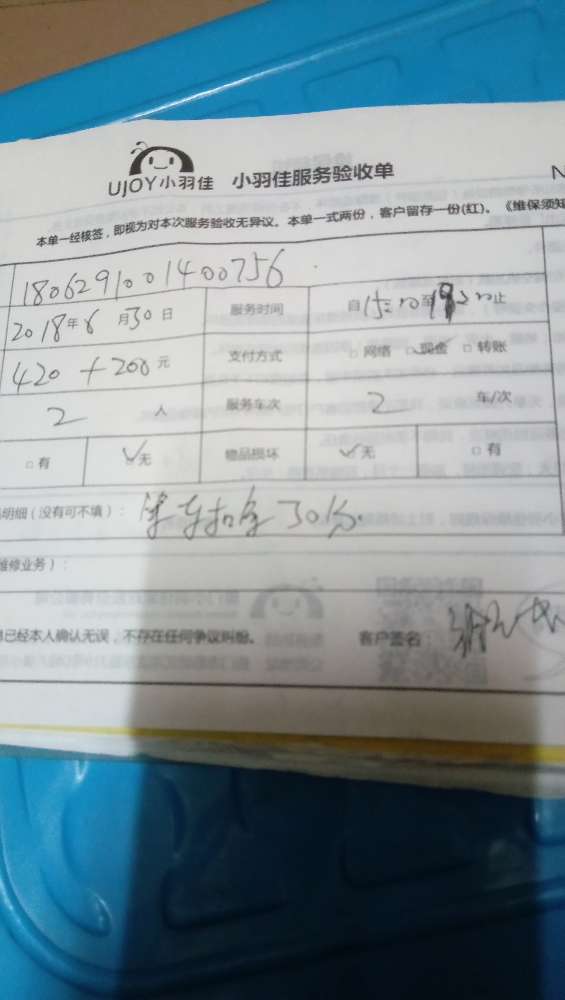 UJOY小羽佳 小羽佳服务验收单 N
本单一经核签，即视为对本次服务验收无异议。本单一式两份，客户留存一份(红)。《维保须知
1806291001400756
2018年6月30日 服务时间 自15:00至19:30止
420+200元 支付方式 □网络 ☑现金 □转账
2人 服务车次 2 车/次
□有 ☑无 物品损坏 ☑无 □有
明细（没有可不填）： 等 30分
维修业务）：
已经本人确认无误，不存在任何争议纠纷。 客户签名：